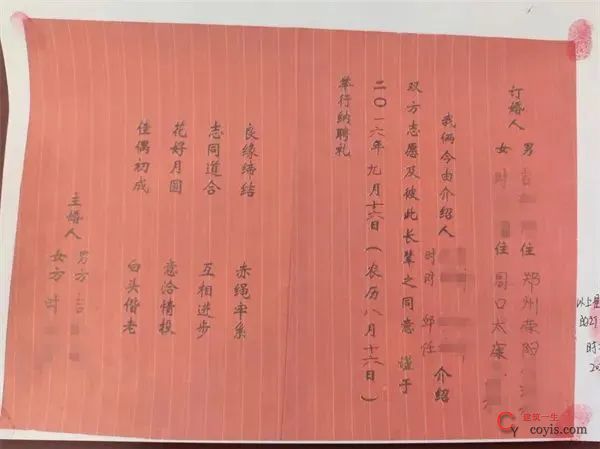 订婚人 男 吉 住 郑州荥阳
女 时 住 周口太康
我俩今由介绍人 时 邱
时 任 介绍
双方志愿及彼此长辈之同意 谨于
二〇一六年九月十六日(农历八月十六日)
举行纳聘礼
良缘缔结 赤绳牢系
志同道合 互相进步
花好月圆 意洽情投
佳偶初成 白头偕老
主婚人 男方 吉
女方 时
以上
时
20
建筑一生
coyis.com